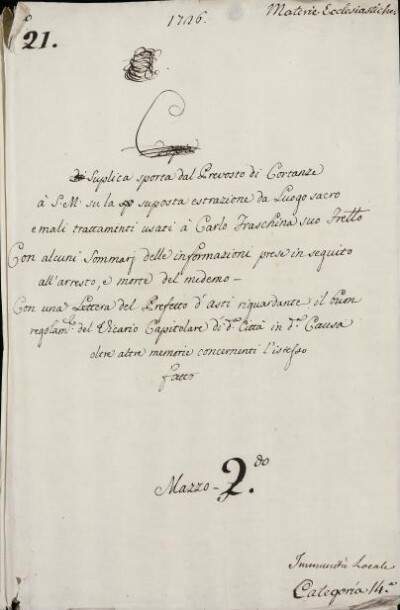 21.
1726.
Materie Ecclesiastiche
Suplica sporta dal Prevosto di Cortanze
à S. M. su la suposta estrazione da Luogo sacro
e mali trattamenti usati à Carlo Fraschina suo Frello
Con alcuni Sommarj delle informazioni prese in seguito
all'arresto, e morte del medemo -
Con una Lettera del Prefetto d'Asti riguardante il buon
regolam.to del Vicario Capitolare di d.ta Città in d.ta Causa
oltre altre memorie concernenti l'istesso
fatto
Mazzo - 2.do
Immunità Locale
Categoria 14.a